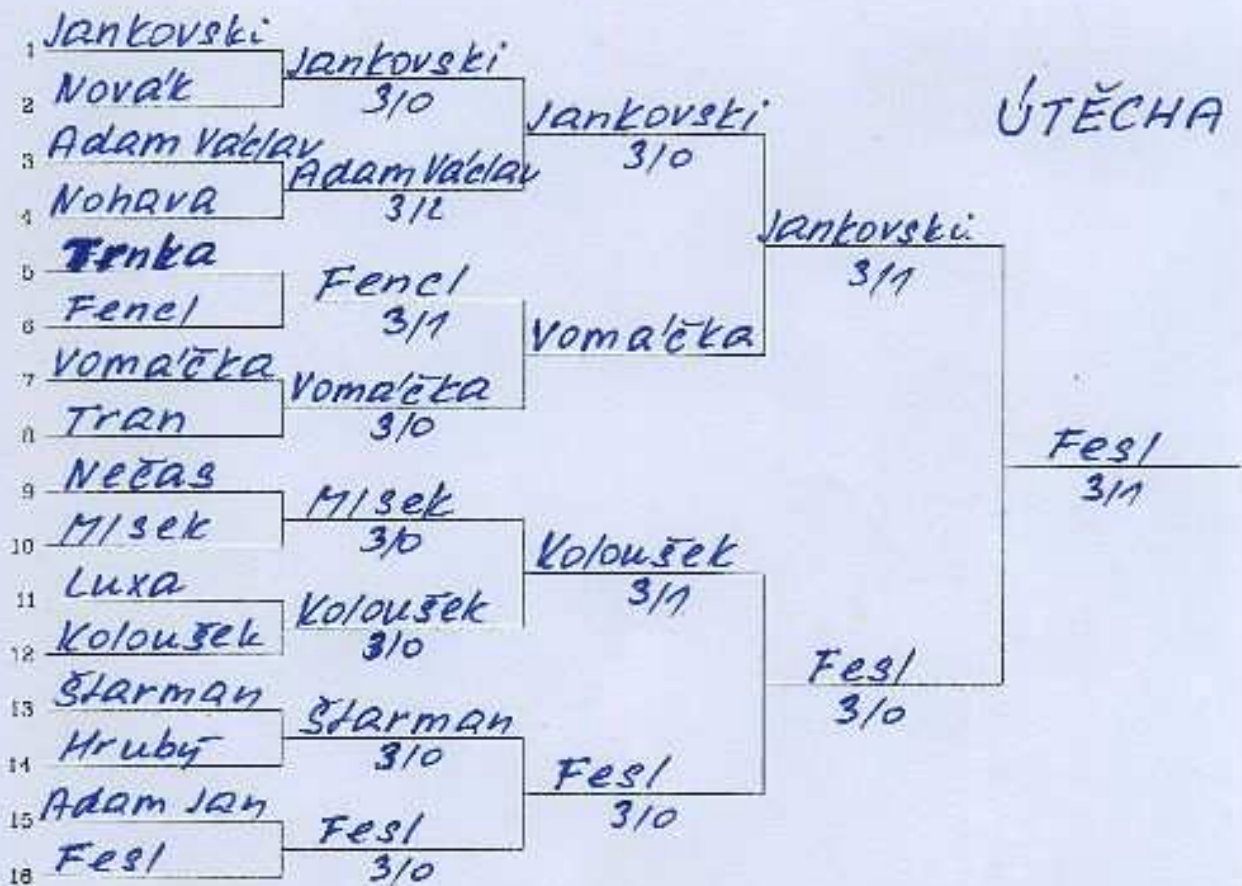 ÚTĚCHA
1 Jankovski
2 Novák
3 Adam Václav
4 Nohava
5 Trnka
6 Fencl
7 Vomáčka
8 Tran
9 Nečas
10 Mlsek
11 Luxa
12 Koloušek
13 Štarman
14 Hrubý
15 Adam Jan
16 Fesl
Jankovski
3/0
Adam Václav
3/2
Fencl
3/1
Vomáčka
3/0
Mlsek
3/0
Koloušek
3/0
Štarman
3/0
Fesl
3/0
Jankovski
3/0
Vomáčka
Koloušek
3/1
Fesl
3/0
Jankovski
3/1
Fesl
3/0
Fesl
3/1